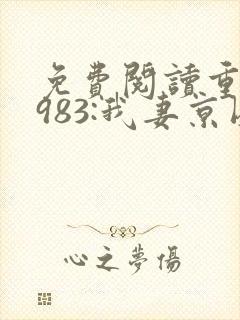 免費閱讀重
983:我妻京
心之夢傷